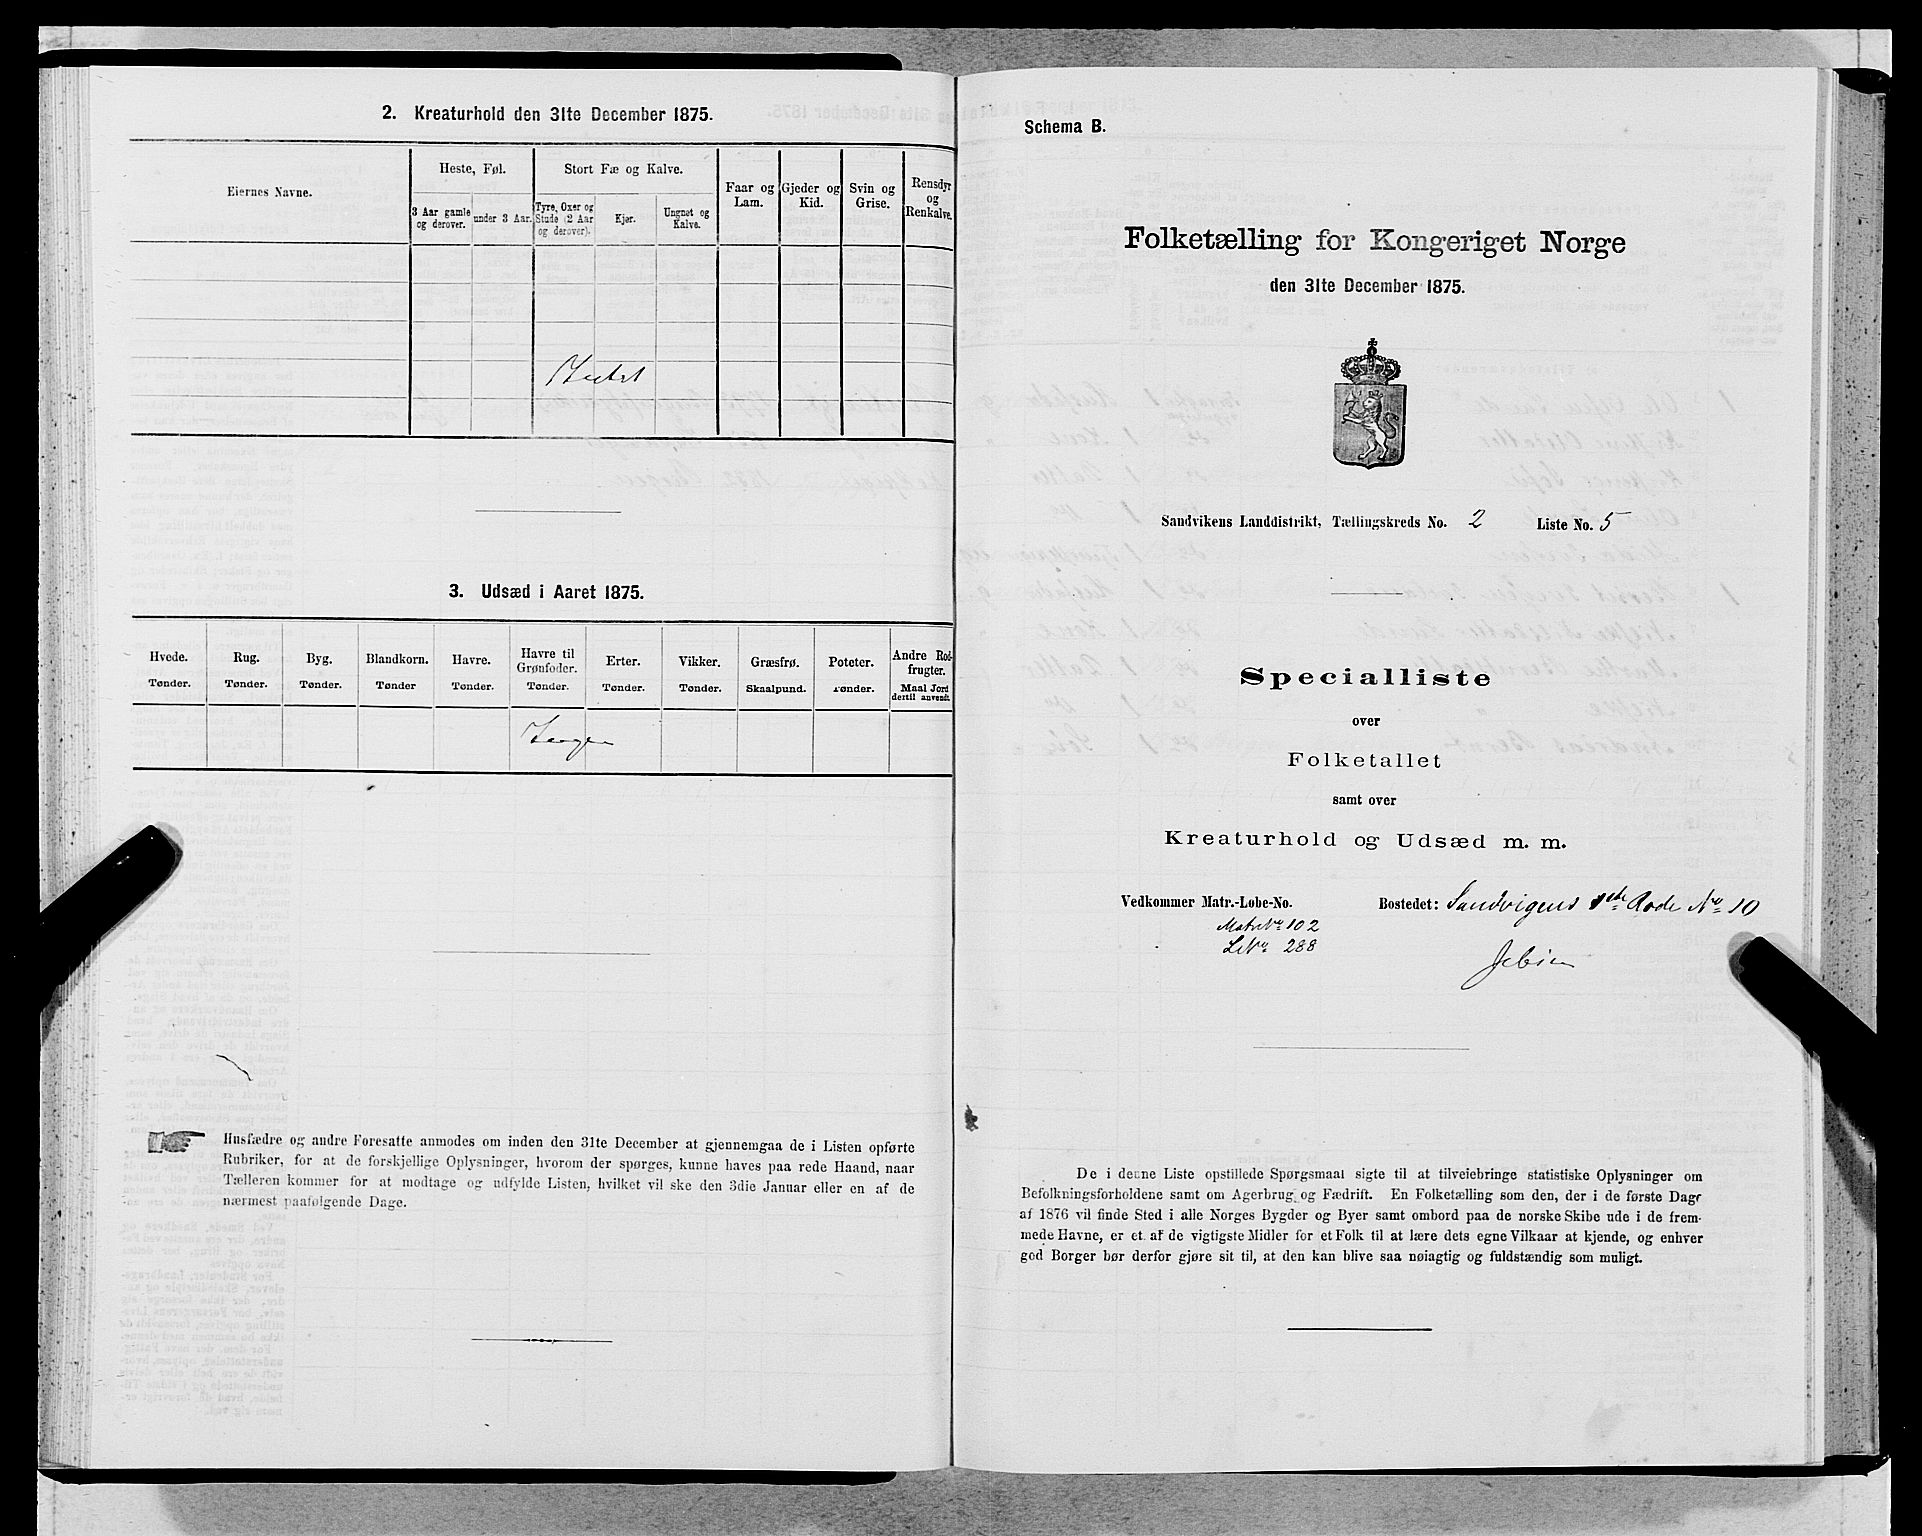 2. Kreaturhold den 31te December 1875.
Eiernes Navne.
Heste, Føl.
3 Aar gamle og derover.
under 3 Aar.
Stort Fæ og Kalve.
Tyre, Oxer og Stude (2 Aar og derover).
Kjør.
Ungnøt og Kalve.
Faar og Lam.
Gjeder og Kid.
Svin og Grise.
Rensdyr og Renkalve.
3. Udsæd i Aaret 1875.
Hvede. Rug. Byg. Blandkorn. Havre. Havre til Grønfoder. Erter. Vikker. Græsfrø. Poteter. Andre Rodfrugter.
Tønder. Tønder. Tønder. Tønder Tønder. Tønder. Tønder. Tønder. Skaalpund. Tønder. Maal Jord dertil anvendt.
Ingen
Husfædre og andre Foresatte anmodes om inden den 31te December at gjennemgaa de i Listen opførte
Rubriker, for at de forskjellige Oplysninger, hvorom der spørges, kunne haves paa rede Haand, naar
Tælleren kommer for at modtage og udfylde Listen, hvilket vil ske den 3die Januar eller en af de
nærmest paafølgende Dage.
Schema B.
Folketælling for Kongeriget Norge
den 31te December 1875.
Sandvikens Landdistrikt, Tællingskreds No. 2 Liste No. 5
Specialliste
over
Folketallet
samt over
Kreaturhold og Udsæd m. m.
Vedkommer Matr.-Løbe-No. Bostedet: Sandvigens Rode No 10
Matr No 102
L No 288
De i denne Liste opstillede Spørgsmaal sigte til at tilveiebringe statistiske Oplysninger om
Befolkningsforholdene samt om Agerbrug og Fædrift. En Folketælling som den, der i de første Dage
af 1876 vil finde Sted i alle Norges Bygder og Byer samt ombord paa de norske Skibe ude i de frem-
mede Havne, er et af de vigtigste Midler for et Folk til at lære dets egne Vilkaar at kjende, og enhver
god Borger bør derfor gjøre sit til, at den kan blive saa nøiagtig og fuldstændig som muligt.